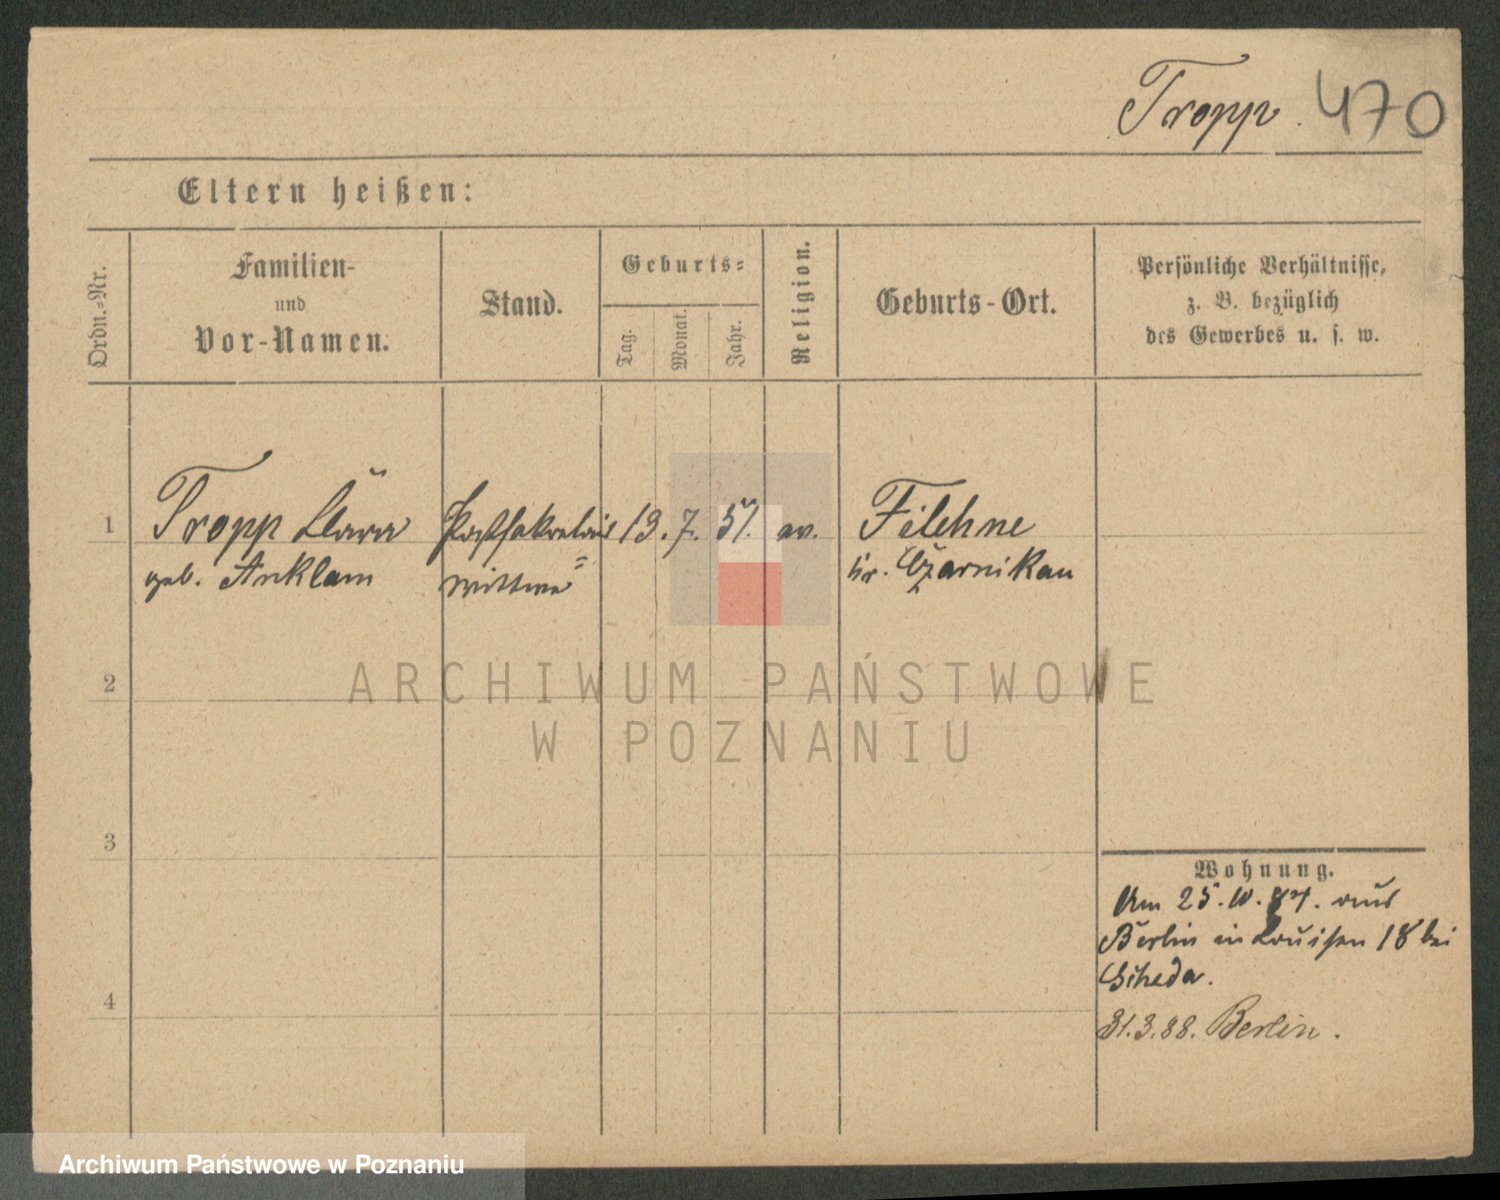 Tropp. 470
Eltern heißen:
Ordn.-Nr.
Familien-
und
Vor-Namen.
Stand.
Geburts-
Tag.
Monat.
Jahr.
Religion.
Geburts-Ort.
Persönliche Verhältnisse,
z. B. bezüglich
des Gewerbes u. s. w.
1 Tropp Clara 13. 7. 51. ev. Filehne
geb. Anklam wittwe Kr. Czarnikau
2
ARCHIWUM PAŃSTWOWE
W POZNANIU
3
Wohnung.
Am 25. 10. 87. aus
Berlin in Louisen 18 bei
Scheda.
4
31.3.88. Berlin.
Archiwum Państwowe w Poznaniu